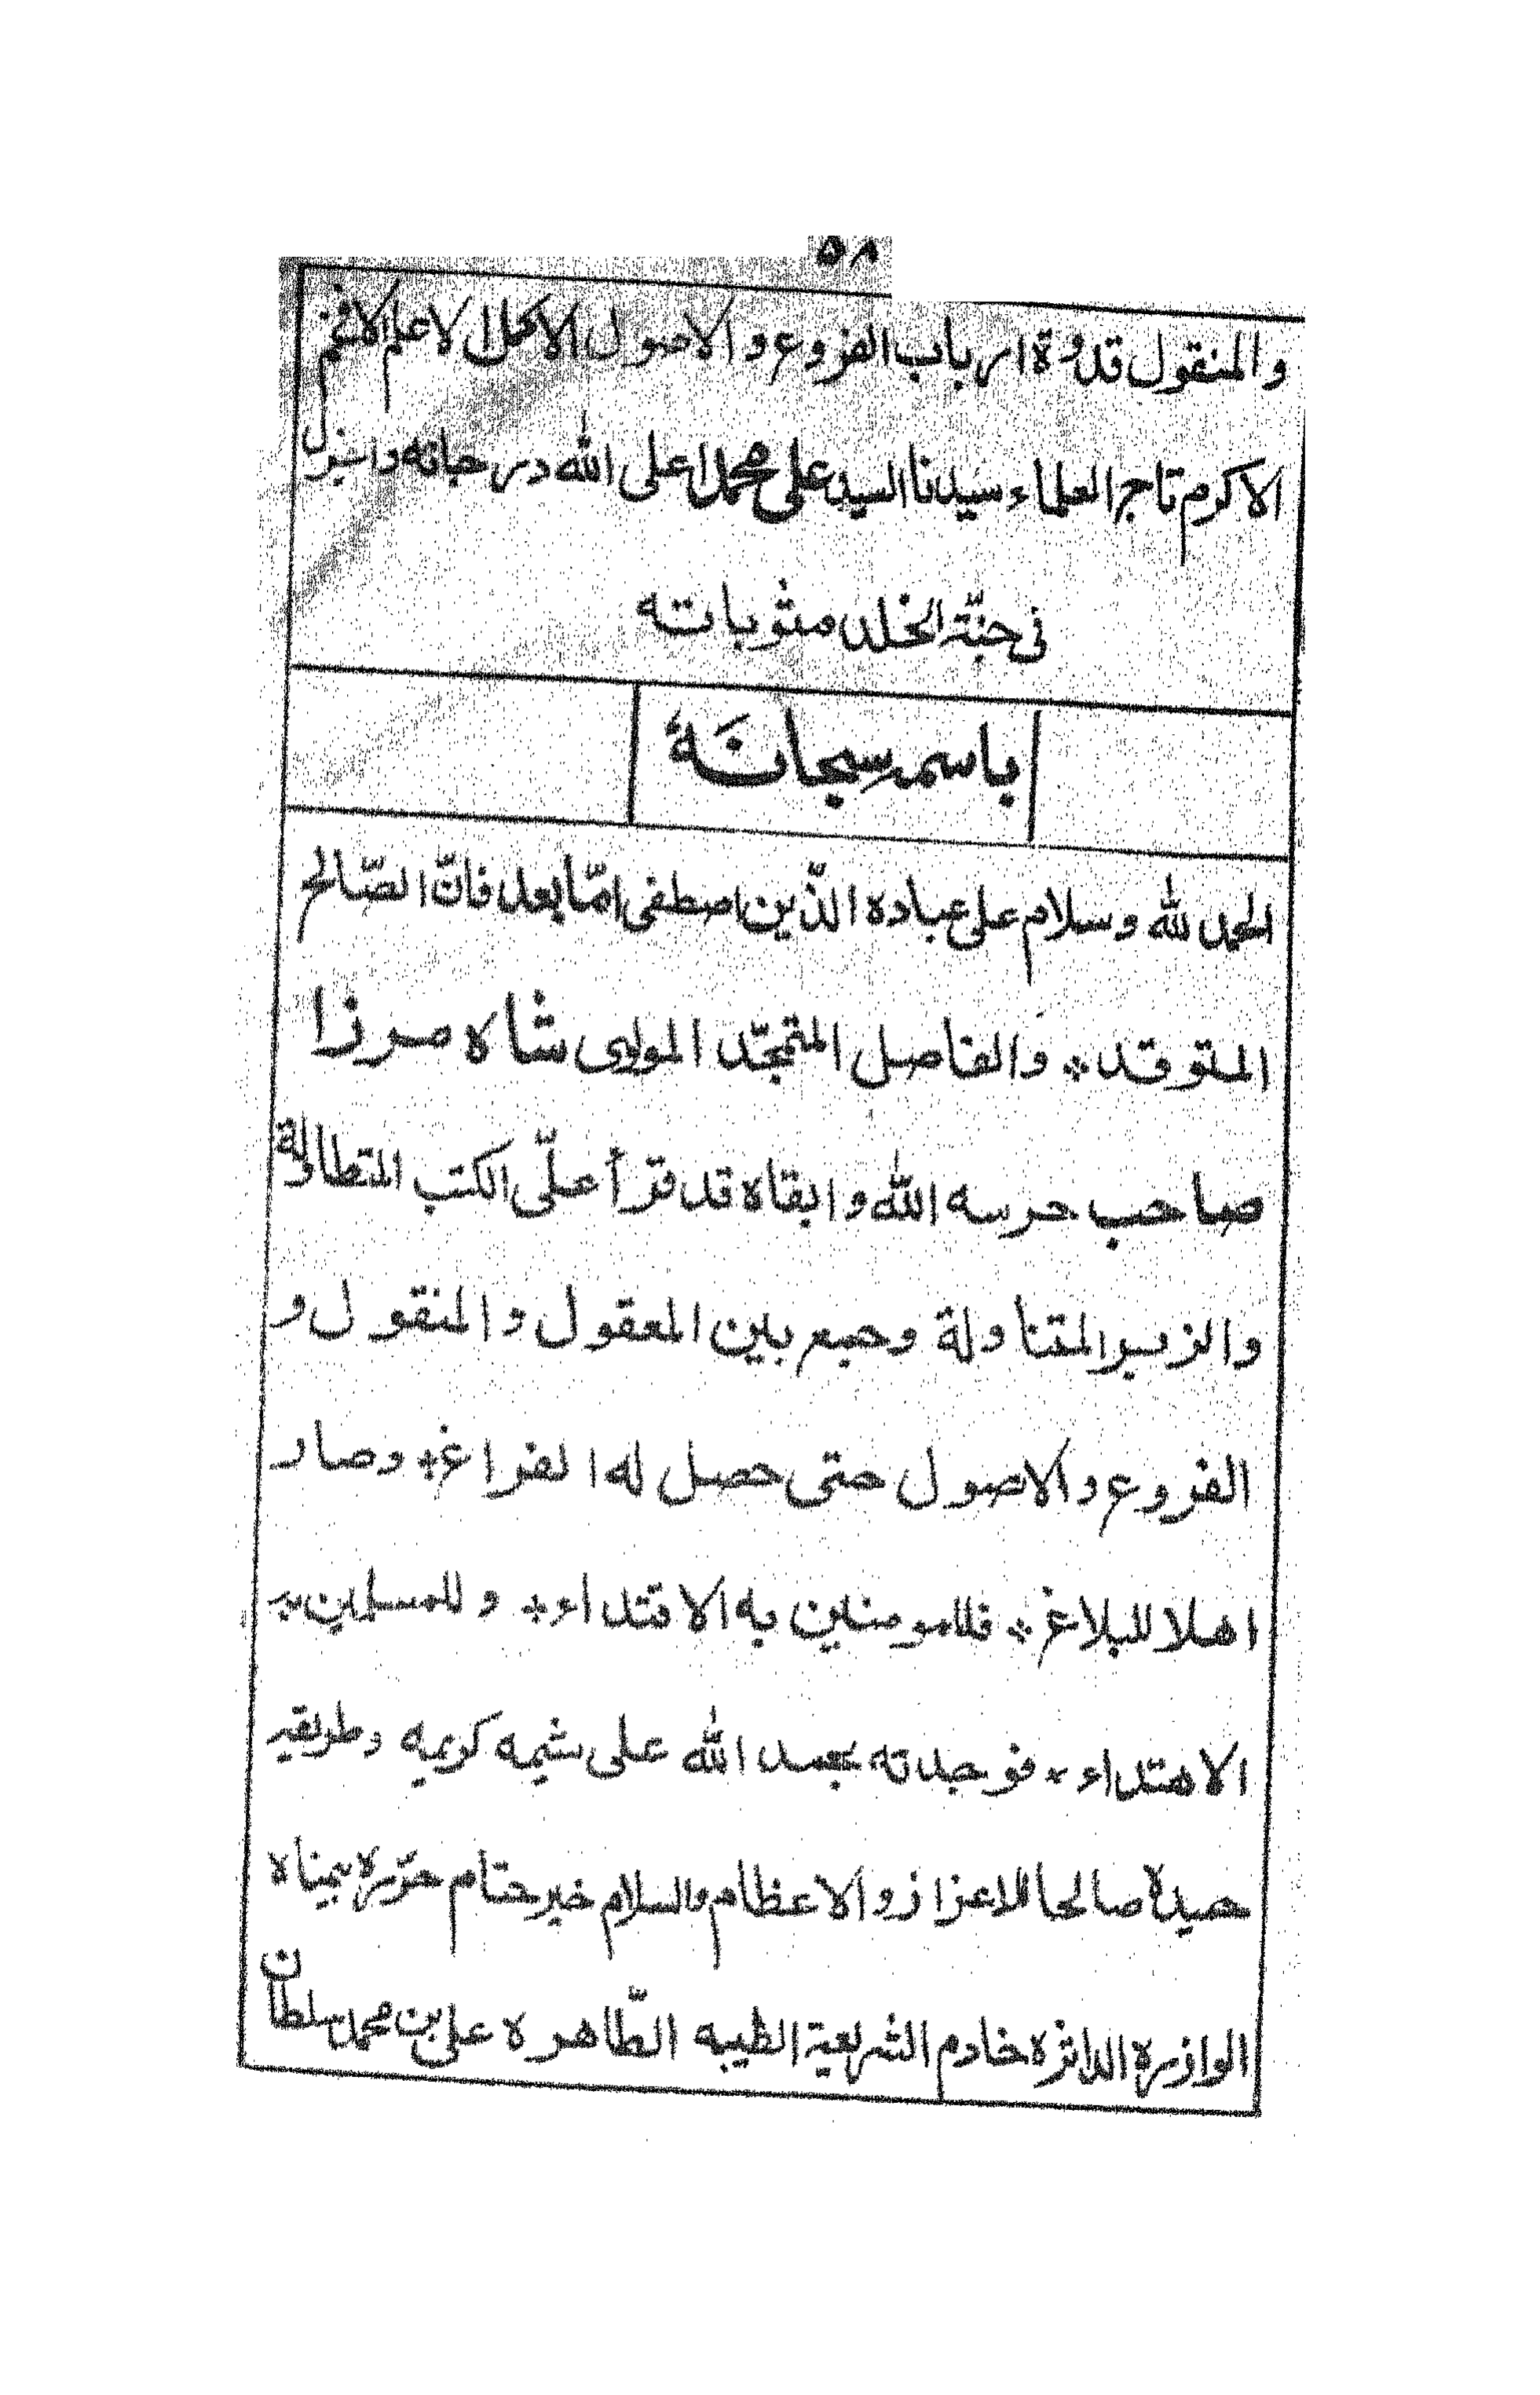 ٥٨
والمنقول قدوة ارباب الفروع والاصول الاكمل الاعلم الافخم
الاكرم تاج العلماء سيدنا السيد على محمد اعلى الله درجاته واجزل
فى جنّة الخلد مثوباته
باسمہ سبحانَهٗ
الحمد لله وسلام على عباده الذّين اصطفى امّا بعد فانّ الصّالح
المتوقد؞ والفاضل المتمجّد المولوى شاه مرزا
صاحب حرسه الله وابقاه قد قرأ علّى الكتب المتطاولة
والزبر المتناولة وجمع بين المعقول والمنقول و
الفروع والاصول حتى حصل له الفراغ؞ وصار
اهلا للبلاغ؞ فللمومنين به الاقتداء؞ وللمسلمين بہ
الاهتداء؞ فوجدته بحمد الله على شيمه كريمه وطريقہ
حميدة صالحا للاعزاز والاعظام والسلام خير ختام حرّره بيمناه
الوازرة الداثرة خادم الشريعية الطيبه الطّاهره على بن محمد سلطان